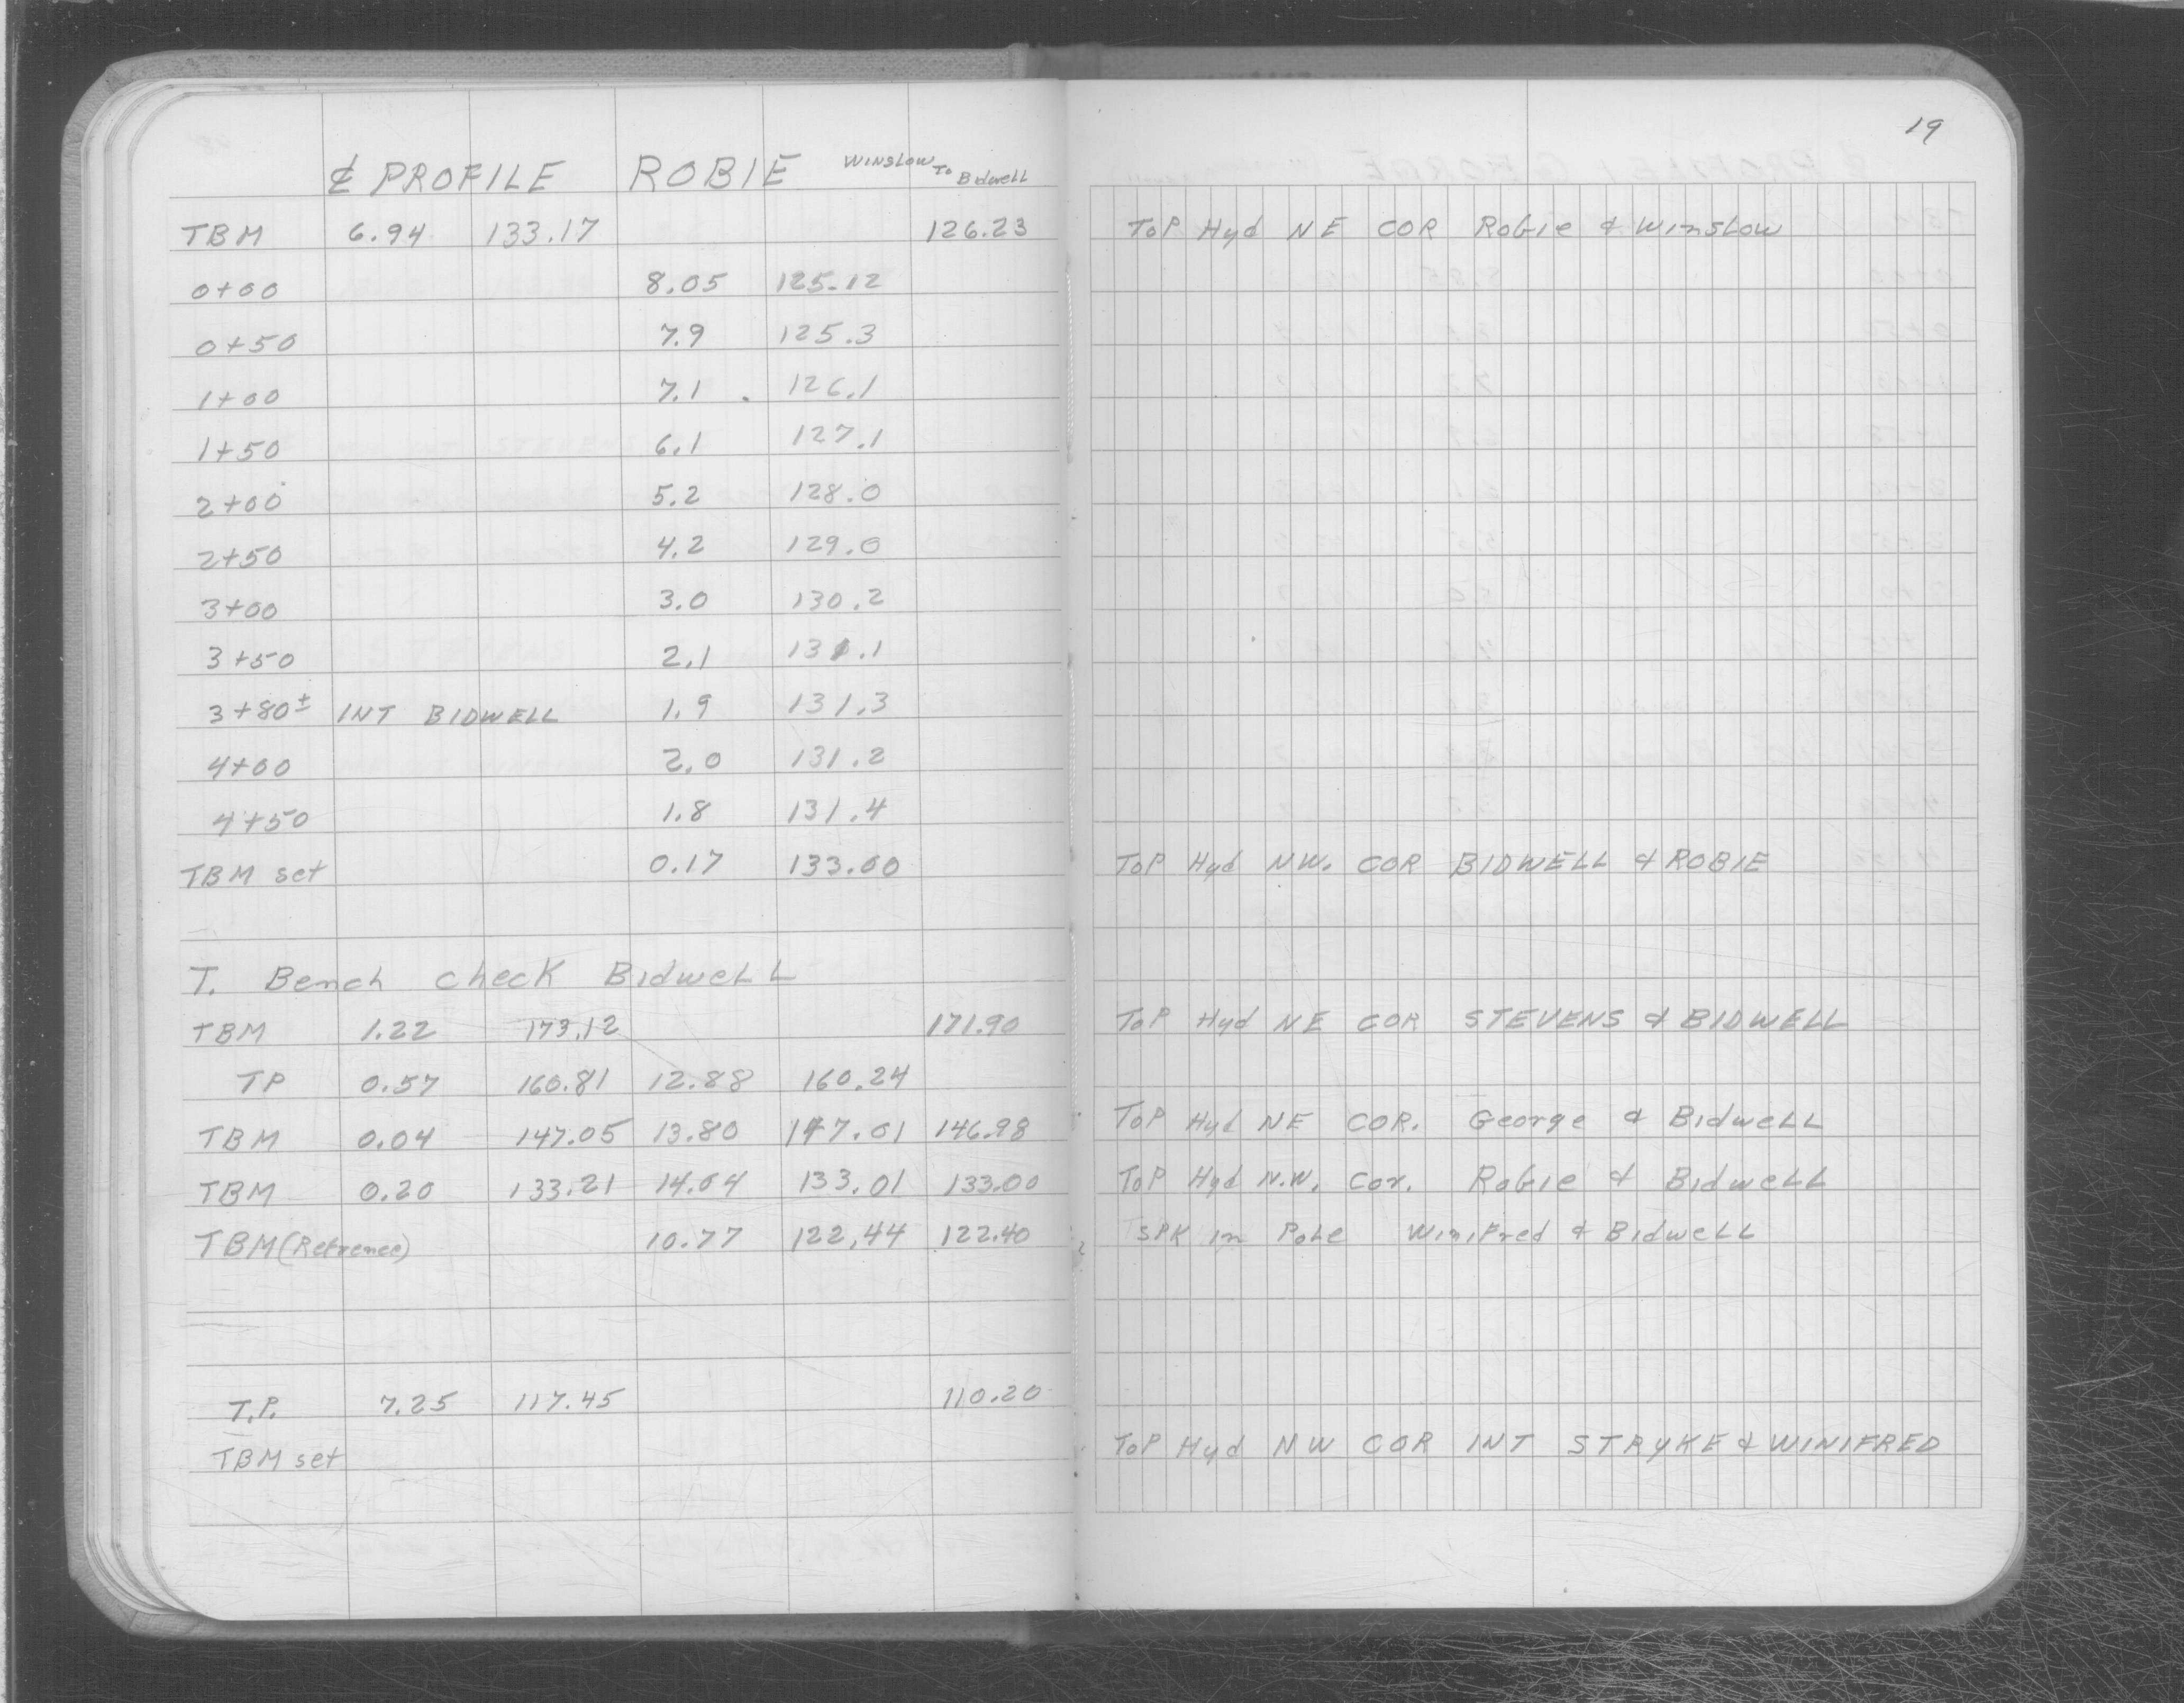 19
℄ PROFILE ROBIE Winslow To Bidwell
TBM 6.94 133.17 126.23 Top Hyd NE COR Robie & Winslow
0+00 8.05 125.12
0+50 7.9 125.3
1+00 7.1 126.1
1+50 6.1 127.1
2+00 5.2 128.0
2+50 4.2 129.0
3+00 3.0 130.2
3+50 2.1 131.1
3+80± INT BIDWELL 1.9 131.3
4+00 2.0 131.2
4+50 1.8 131.4
TBM set 0.17 133.00 Top Hyd NW. COR BIDWELL & ROBIE
T. Bench check Bidwell
TBM 1.22 173.12 171.90 Top Hyd NE COR STEVENS & BIDWELL
TP 0.57 160.81 12.88 160.24
TBM 0.04 147.05 13.80 147.01 146.98 Top Hyd NE COR. George & Bidwell
TBM 0.20 133.21 14.04 133.01 133.00 Top Hyd N.W. Cor. Robie & Bidwell
TBM (Refrence) 10.77 122.44 122.40 SPK in Pole Winifred & Bidwell
T.P. 7.25 117.45 110.20
TBM set Top Hyd NW COR INT STRYKE & WINIFRED